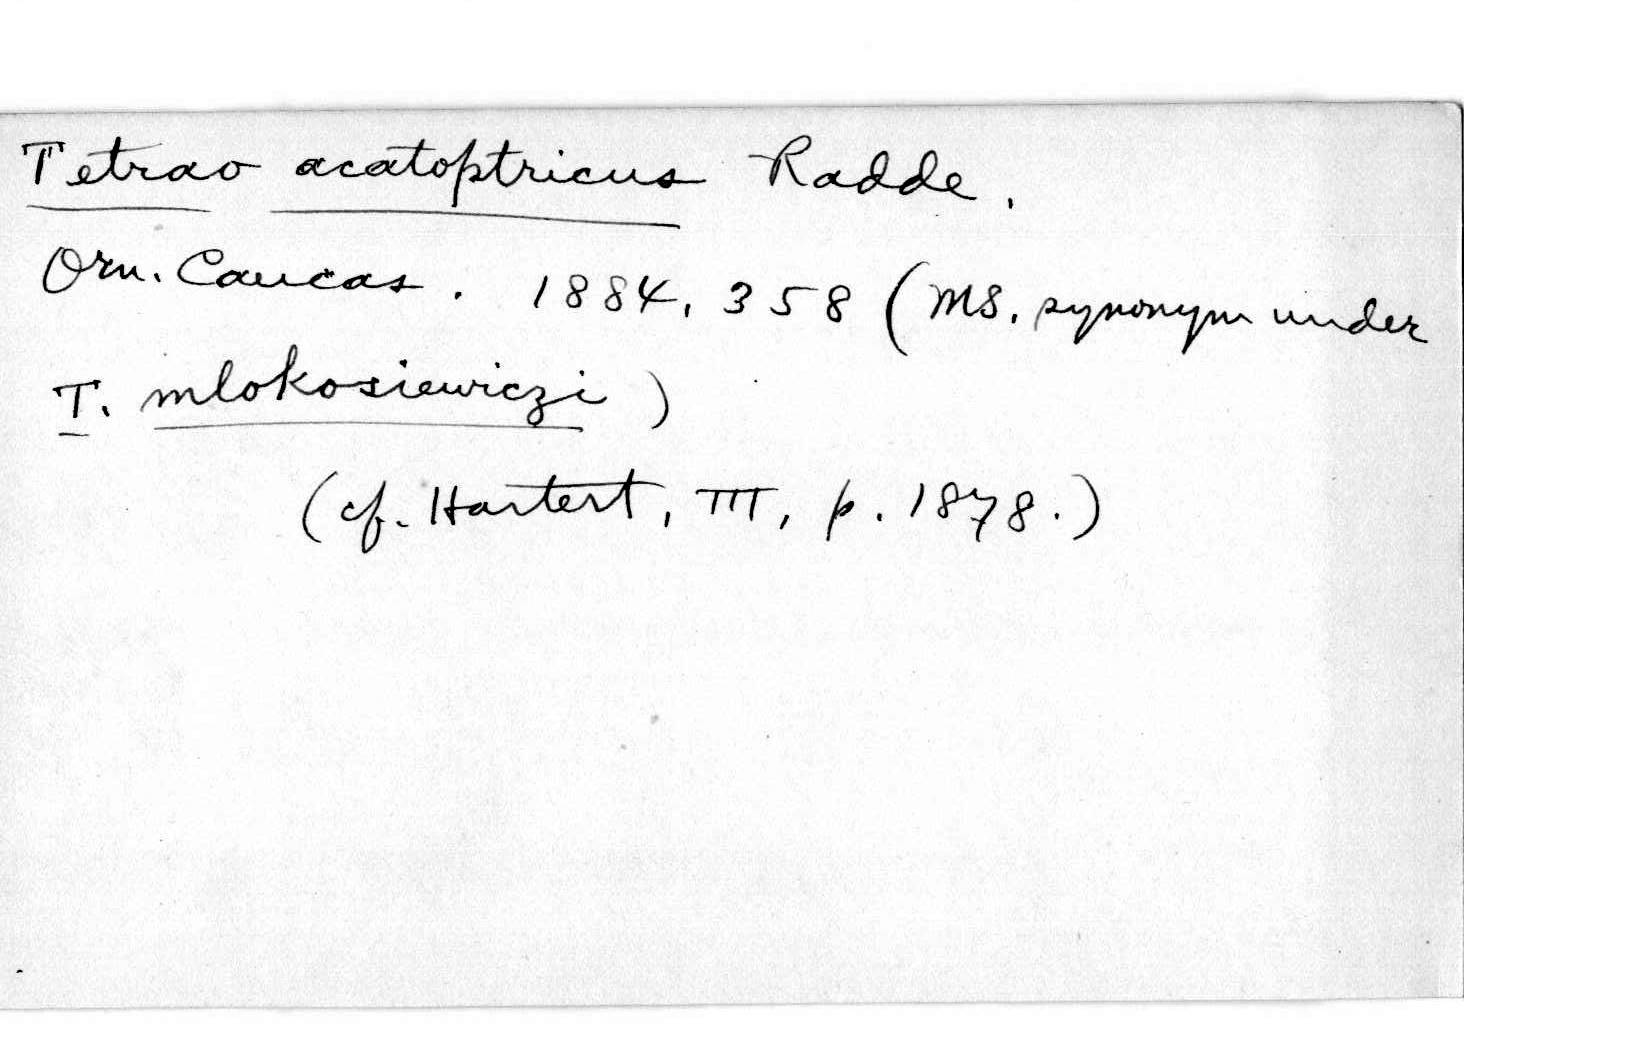 Tetrao acatoptricus Radde.
Orn. Caucas. 1884, 358 (MS. synonym under
T. mlokosiewiczi)
(cf. Hartert, III, p. 1878.)